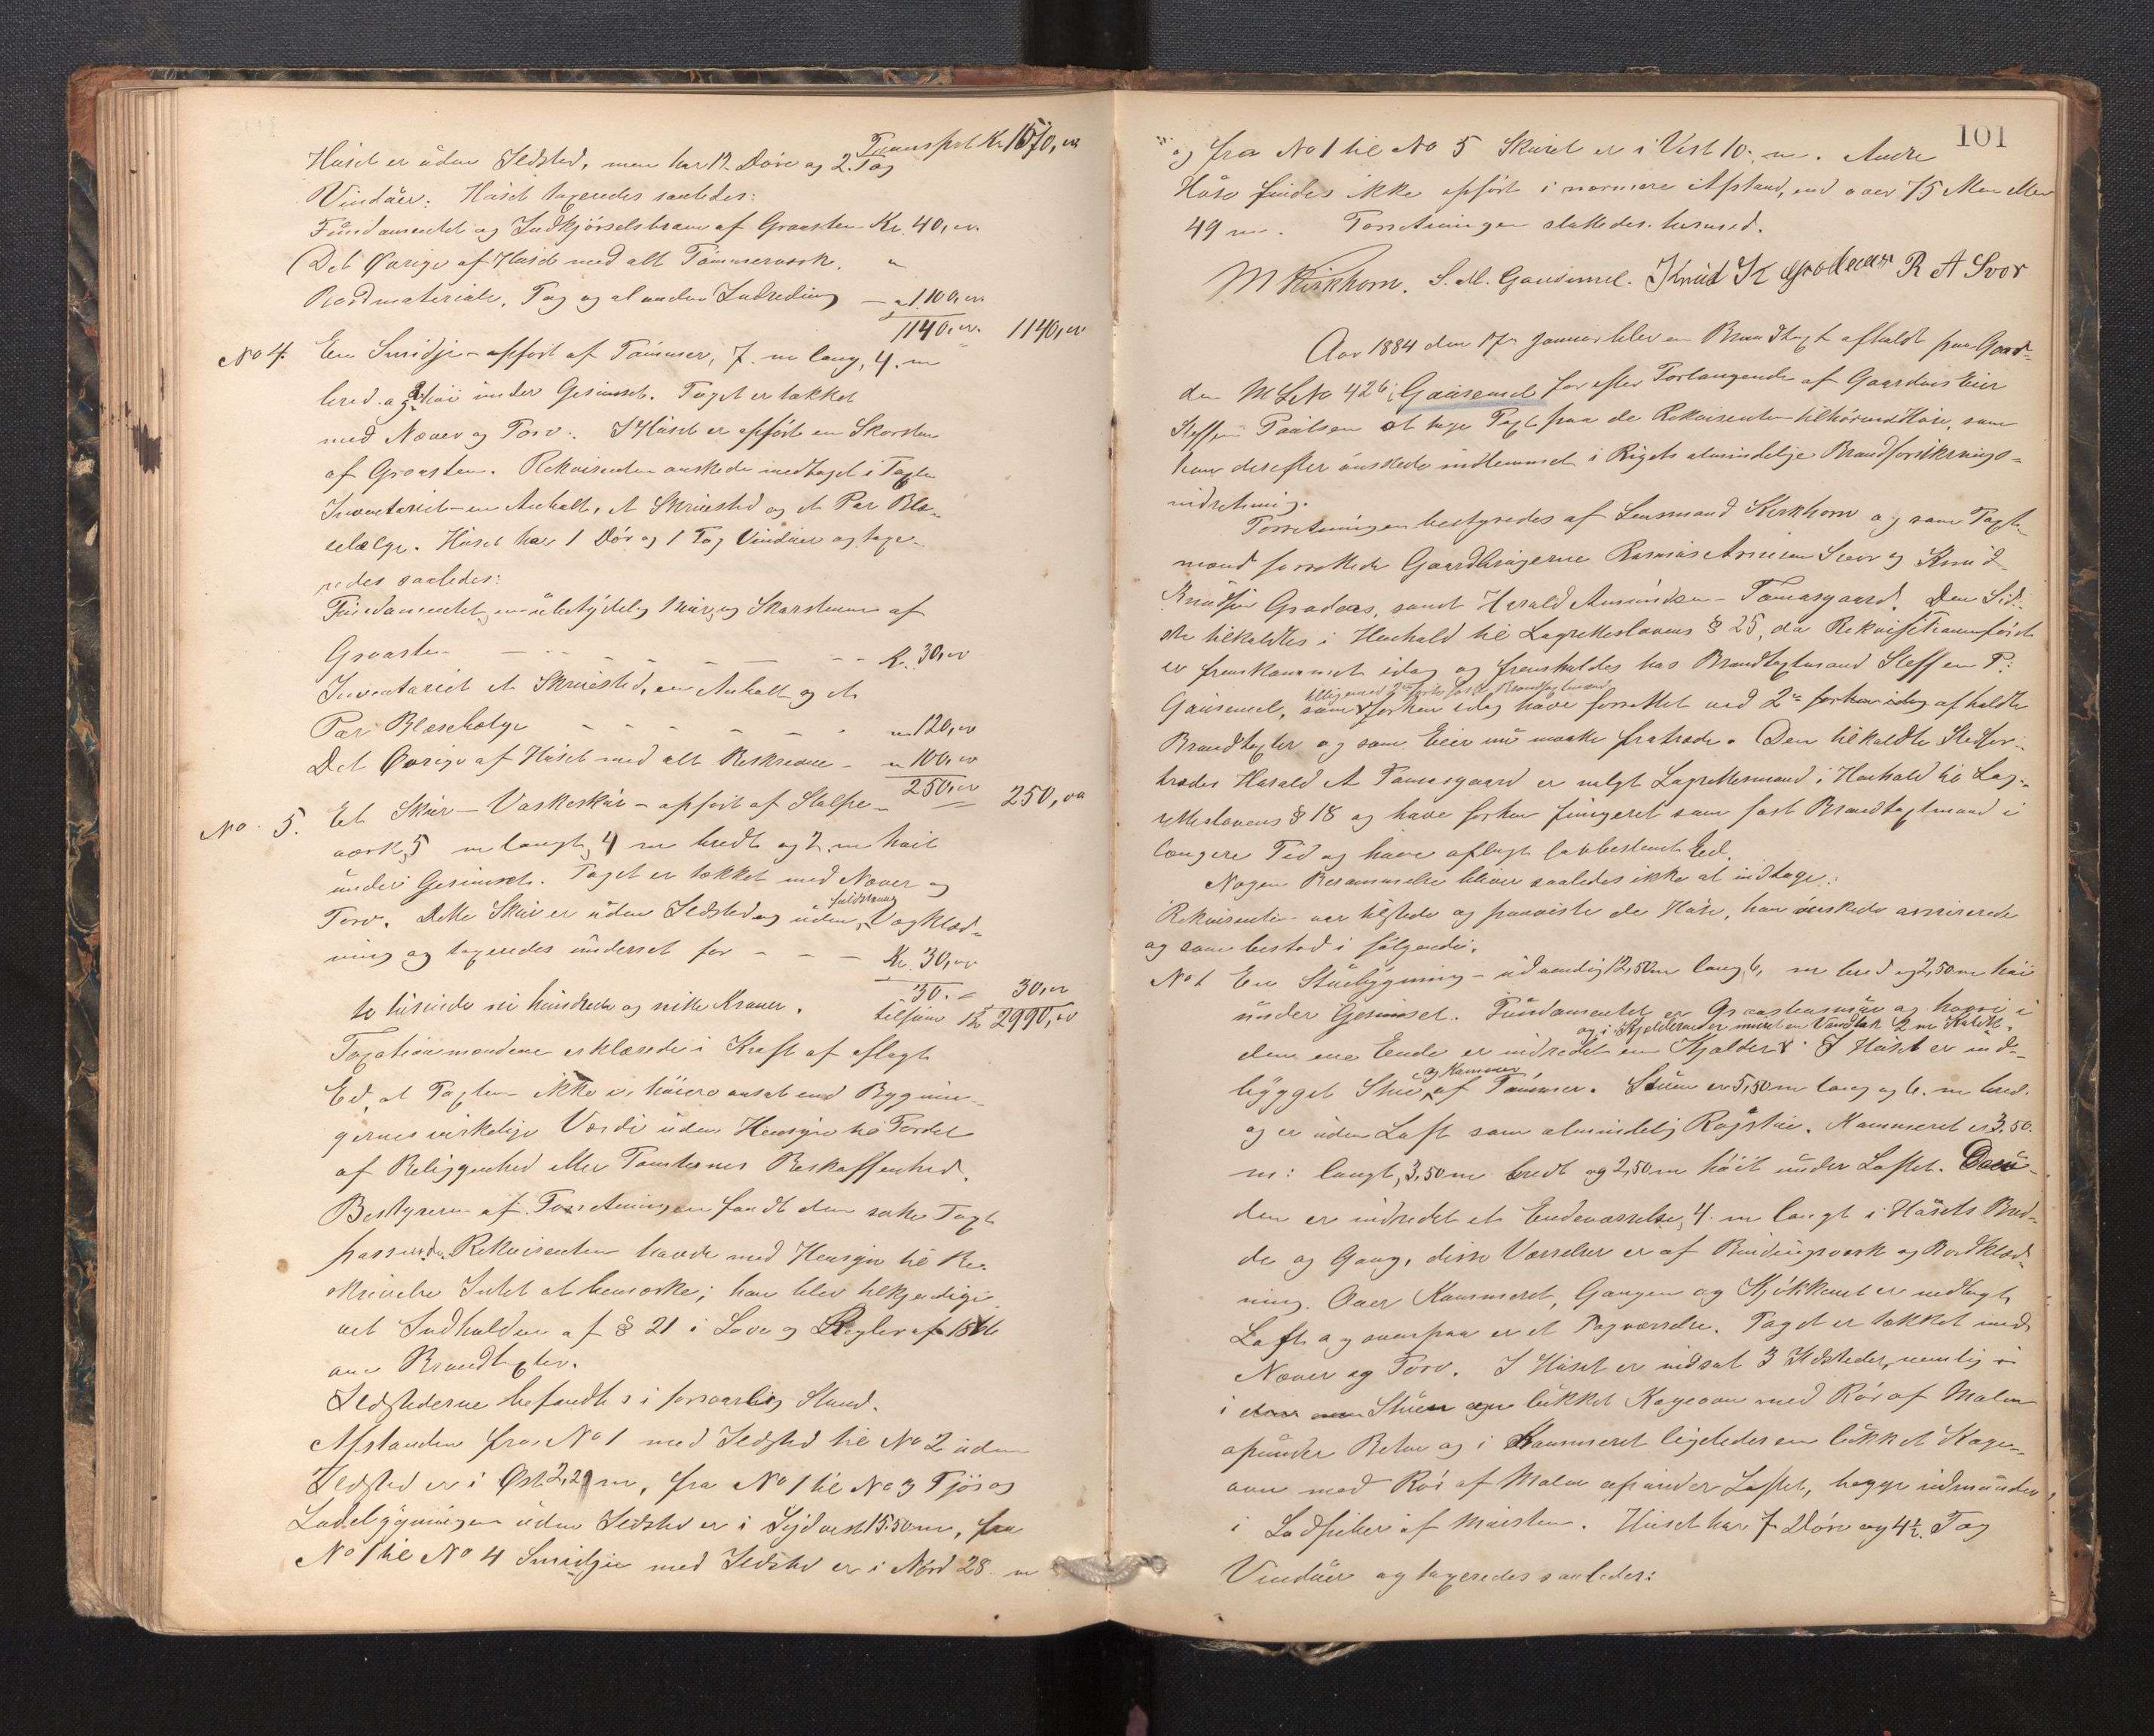 Transport Kr 1570,00
Huset er uden Ildsted, men har 12 Døre og 2. Fag
Vinduer. Huset taxeredes saaledes:
Fundamentet og Indkjørselsbroen af Graasten Kr. 40,00.
Det Øvrige af Huset med alt Tømmerværk, "
Bordmateriale, Tag og al anden Indredning — " 1100,00
1140,00. 1140,00
No 4. En Smidje – opført af Tømmer, 7. m lang, 4. m
bred og 2 høi under Gesimset. Taget er tækket
med Næver og Torv. I Huset er opført en Skorsten
af Graasten. Rekvirenten ønskede medtaget i Taxten
Inventariet – en Ambolt, et Skruested og et Par Blæ-
sebælge. Huset har 1 Dør og 1 Fag Vinduer og taxe-
redes saaledes:
Fundamentet, en ubetydelig Mur, og Skorstenen af
Graasten — — — K. 30,00
Inventariet et Skruested, en Ambolt og et
Par Blæsebælge — — — " 120,00
Det Øvrige af Huset med alt Beskrevne – " 100,00
250,00 250,00
No 5. Et Skur – Vaskeskur – opført af Stolpe-
værk, 5 m langt, 4 m bredt og 2 m høit
under Gesimset. Taget er tækket med Næver og
Torv. Dette Skur er uden Ildsted og uden fuldstændig Vægklæd-
ning og taxeredes underset for — — — Kr. 30,00
30. = 30,00
to tusinde ni hundrede og nitti Kroner. tilsum Kr 2990,00
Taxationsmændene erklærede i Kraft af aflagt
Ed, at Taxten ikke er høiere ansat end Bygnin-
gernes virkelige Værdi uden Hensyn til Fordel
af Beliggenhed eller Tomternes Beskaffenhed.
Bestyreren af Forretningen fandt den satte Taxt
passende. Rekvirenten havde med Hensyn til Be-
skrivelse Intet at bemærke; han blev tilkjendegi-
vet Indholdet af § 21 i Love og Regler af 1846
om Brandtaxter.
Ildstederne befandtes i forsvarlig Stand.
Afstanden fra No 1 med Ildsted til No 2 uden
Ildsted er i Øst 2,29 m, fra No 1 til No 3 Fjøs og
Ladebygningen uden Ildsted er i Sydvest 15.50 m, fra
No 1 til No 4 Smidjen med Ildsted er i Nord 28. m
101
og fra No 1 til No 5 Skuret er i Vest 10. m. Andre
Huse findes ikke opført i nærmere Afstand, end over 75 Alen eller
49 m. Forretningen sluttedes hermed.
M Kirkhorn. S. M. Gausemel. Knud K Grodaas R A Svor
Aar 1884 den 17de Januar blev en Brandtaxt afholdt paa Gaar-
den M L No 42 b Gausemel for efter Forlangende af Gaardens Eier
Steffen Paulsen at tage Taxt paa de Rekvirenten tilhørende Huse, som
han derefter ønskede indlemmet i Rigets almindelige Brandforsikrings-
indretning.
Forretningen bestyredes af Lensmand Kirkhorn og som Taxt-
mænd forrettede Gaardbrugerne Rasmus Arnesen Svor og Knud
Knudsen Grodaas, samt Harald Amundsen Tomasgaard. Den Sid-
ste tilkaldtes i Henhold til Lagrettesloven § 25, da Rekvisitionen først
er fremkommet idag og fremholdes hos Brandtaxtmand Steffen P.
Gausemel, som forhen idag have forrettet ved 2de forhen idag afholdte
Brandtaxter og som Eier nu maatte fratræde. Den tilkaldte Stedfor-
træder Harald A Tomasgaard er valgt Lagrettesmand i Henhold til Lag-
retteslovens § 18 og have forhen fungeret som fast Brandtaxtmand i
længere Tid og have aflagt lovbestemt Ed.
Nogen Berammelse bliver saaledes ikke at indtage.
Rekvirenten var tilstede og paaviste de Huse, han ønskede assurerede
og som bestod i følgende.
No 1 En Stuebygning – udvendig 12,50 m lang, 6, m bred og 2,50 m høi
under Gesimset. Fundamentet er Graastensmur og hvori i
og i Kjelderen er muret en Vandtæt 2 m
den ene Ende er indredet en Kjelder. I Huset er ind-
bygget Stue og Kammer af Tømmer. Stuen er 5,50 m lang og 6. m bred
og er uden Loft som almindelig Røgstue. Kammeret er 3.50.
m: langt, 3,50 m bredt og 2,50 m høit under Loftet. Desu-
den er indredet et Endeværrelse, 4. m langt i Husets Bred-
de og Gang, disse Værrelser er af Bindingsværk og Bordklæd-
ning. Over Kammeret, Gangen og Kjøkkenet er nedlagt
Loft og ovenpaa er et Tagværrelse. Taget er tækket med
Næver og Torv. I Huset er indsat 3 Ildsteder, nemlig
i Stuen en lukket Kogeovn med Rør af Malm
opunder Røtn og i Kammeret ligeledes en lukket Koge-
ovn med Rør af Malm opunder Loftet, begge indmunder
i Ladpiber af Mursten. Huset har 7 Døre og 4½ Fag
Vinduer og taxeredes saaledes: